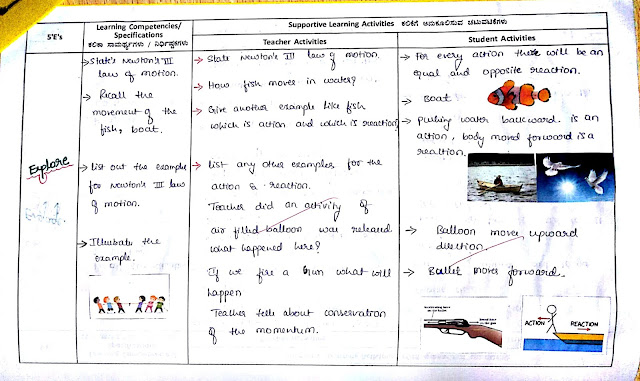 5'E's
Learning Competencies/
Specifications
ಕಲಿಕಾ ಸಾಮರ್ಥ್ಯಗಳು / ನಿರ್ದಿಷ್ಟಗಳು
Supportive Learning Activities ಕಲಿಕೆಗೆ ಅನುಕೂಲಿಸುವ ಚಟುವಟಿಕೆಗಳು
Teacher Activities
Student Activities
Explore
→ State's Newton's III
law of motion.
→ Recall the
movement of the
fish, boat.
→ List out the example
for Newton's III law
of motion.
→ Illustrate the
example.
→ State Newton's III law of motion.
→ How fish moves in water?
→ Give another example like fish
which is action and which is reaction?
→ List any other examples for the
action & reaction.
Teacher did an activity of
air filled balloon was released
what happened here?
If we fire a Gun what will
happen
Teacher tells about conservation
of the momentum.
→ For every action there will be an
equal and opposite reaction.
→ Boat
→ pushing water backward is an
action, body moved forward is a
reaction.
→ Balloon moves upward
direction.
→ Bullet moves forward.
ACTION
REACTION